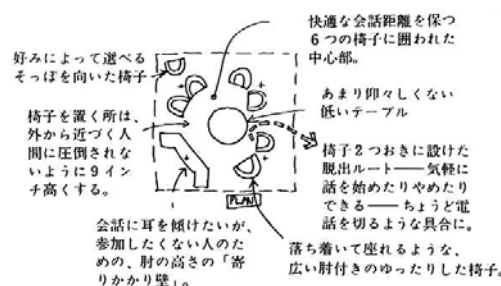 快適な会話距離を保つ
6つの椅子に囲われた
中心部。
好みによって選べる
そっぽを向いた椅子
あまり仰々しくない
低いテーブル
椅子を置く所は、
外から近づく人
間に圧倒されな
いように9イン
チ高くする。
椅子2つおきに設けた
脱出ルート──気軽に
話を始めたりやめたり
できる──ちょうど電
話を切るような具合に。
PLAN
会話に耳を傾けたいが、
参加したくない人のた
めの、肘の高さの「寄
りかかり壁」。
落ち着いて座れるような、
広い肘付きのゆったりした椅子。